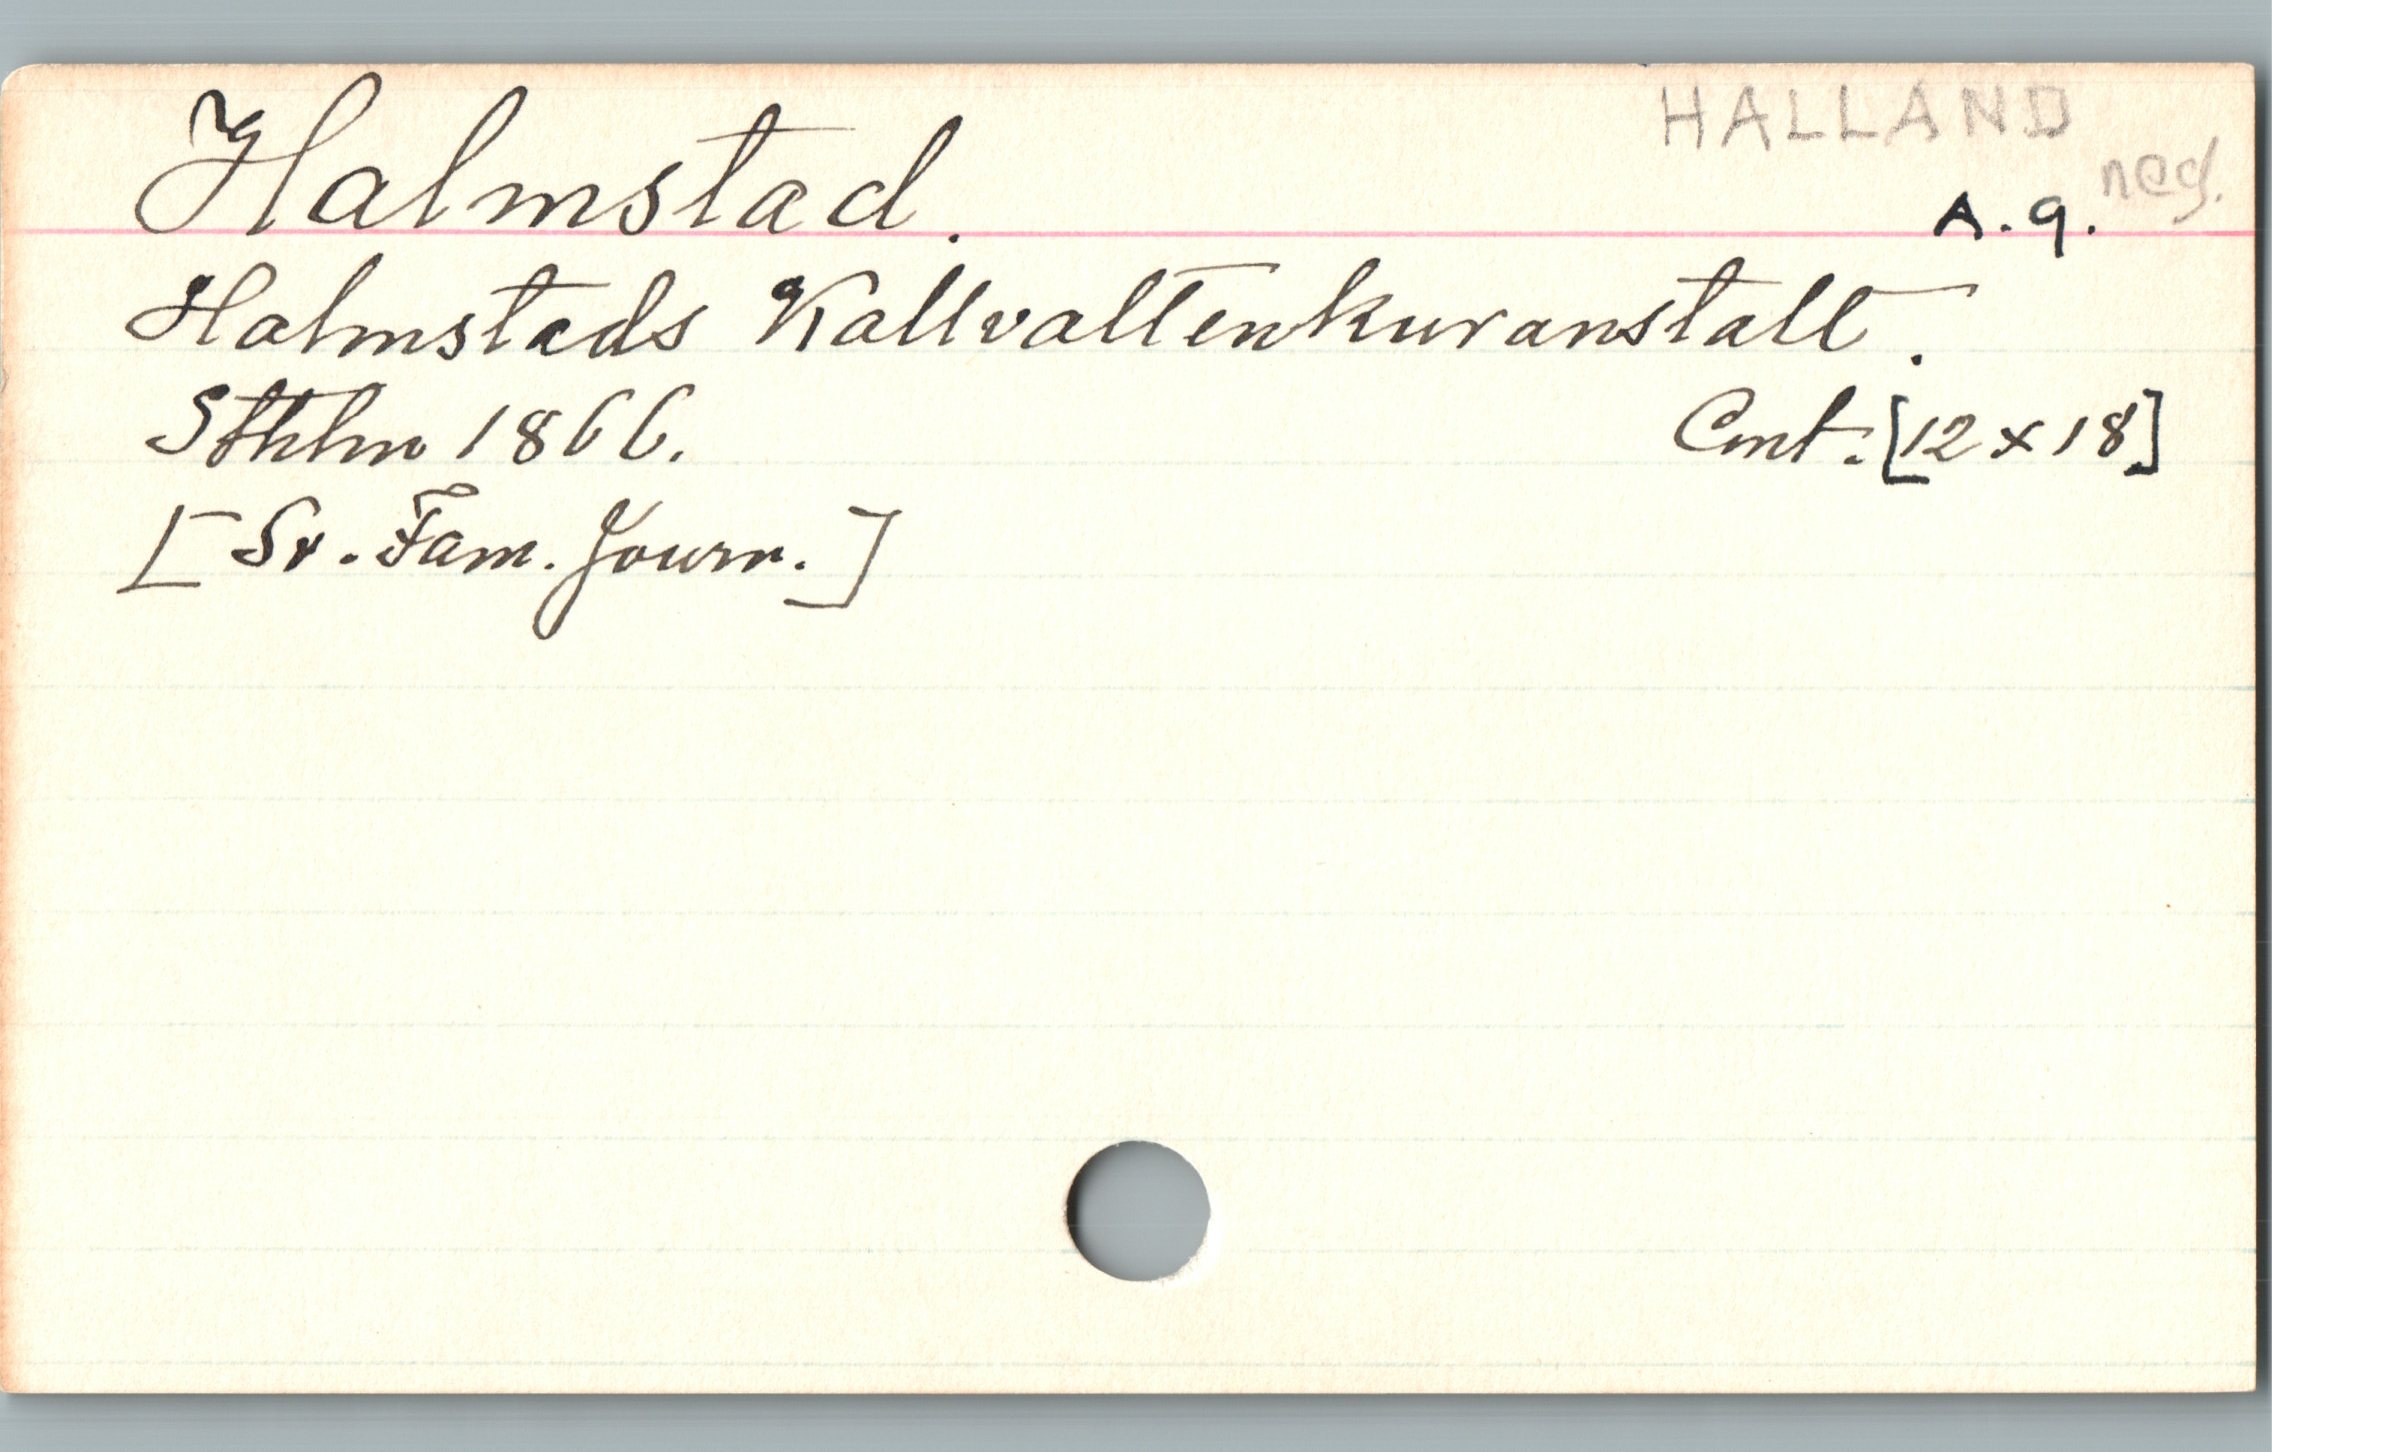 HALLAND
Halmstad.
A. 9. neg.
Halmstads Kallvattenkuranstalt.
Sthlm 1866. Cmt. [12 x 18]
[Sv. Fam. Journ.]